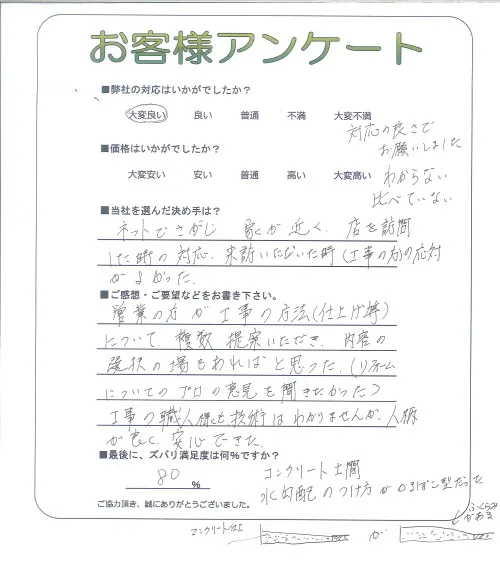 お客様アンケート
■弊社の対応はいかがでしたか？
大変良い 良い 普通 不満 大変不満
対応の良さで
お願いしました
■価格はいかがでしたか？
大変安い 安い 普通 高い 大変高い
わからない
比べていない
■当社を選んだ決め手は？
ネットでさがし 家が近く、店を訪問
した時の対応、来訪いただいた時(工事の方)の応対
がよかった。
■ご感想・ご要望などをお書き下さい。
営業の方が工事の方法(仕上げ等)
について、複数提案いただき、内容の
選択の場もあればと思った。(リフォーム
についてのプロの意見を聞きたかった)
工事の職人様も技術はわかりませんが、人柄
が良く、安心できた。
■最後に、ズバリ満足度は何％ですか？
80 %
コンクリート土間
水勾配のつけ方がかまぼこ型だった
ご協力頂き、誠にありがとうございました。
ふくらみ
がある
コンクリート仕上
が